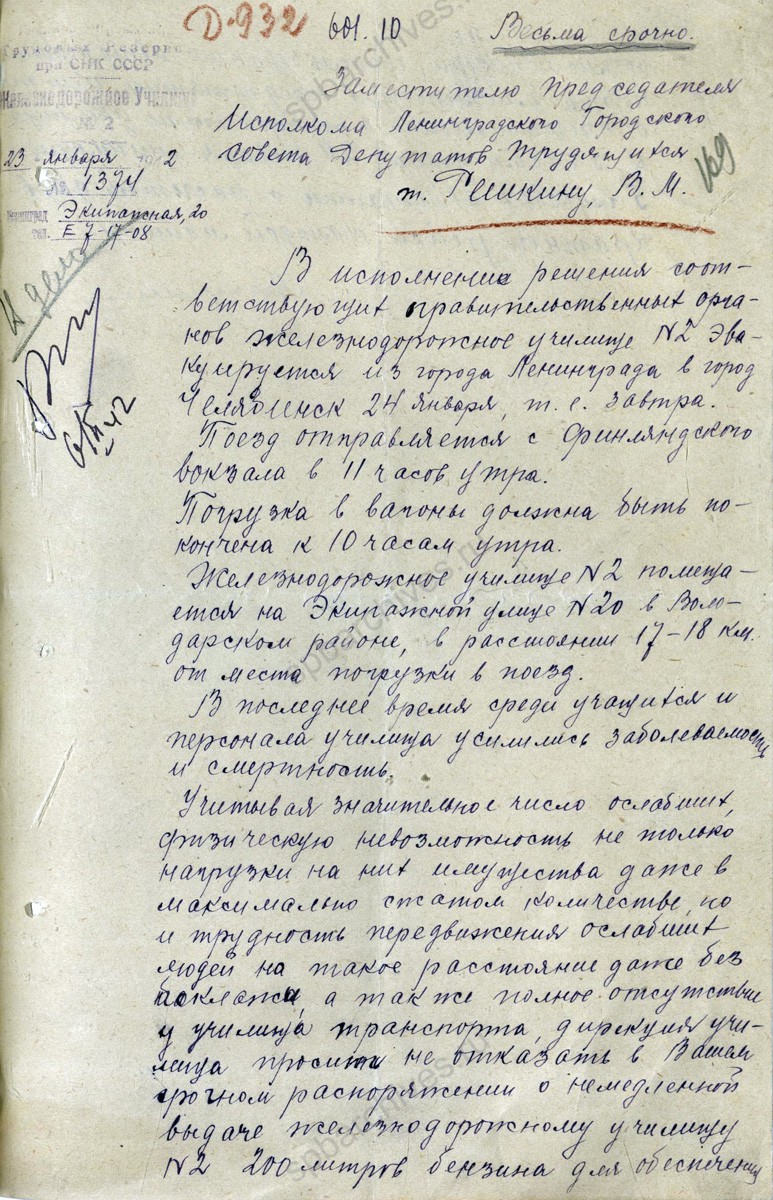 Д-932 Весьма срочно.
Трудовых Резервов
при СНК СССР
Железнодорожное Училище
№ 2
23 января 1942
1374
Ленинград Экипажная, 20
тел. Е 7-17-08
Заместителю председателя
Исполкома Ленинградского Городского
Совета Депутатов Трудящихся
т. Решкину, В. М.
169
В дело
В исполнение решения соот-
ветствующих правительственных орга-
нов железнодорожное училище №2 эва-
куируется из города Ленинграда в город
Челябинск 24 января, т. е. завтра.
Поезд отправляется с Финляндского
вокзала в 11 часов утра.
Погрузка в вагоны должна быть по-
кончена к 10 часам утра.
Железнодорожное училище №2 помеща-
ется на Экипажной улице №20 в Воло-
дарском районе, в расстоянии 17-18 км.
от места погрузки в поезд.
В последнее время среди учащихся и
персонала училища усилились заболеваемость
и смертность.
Учитывая значительное число ослабших,
физическую невозможность не только
нагрузки на них имущества даже в
максимально сжатом количестве, но
и трудность передвижения ослабших
людей на такое расстояние даже без
поклажи, а также полное отсутствие
у училища транспорта, дирекция учи-
лища просит не отказать в Вашем
срочном распоряжении о немедленной
выдаче железнодорожному училищу
№2 200 литров бензина для обеспечения